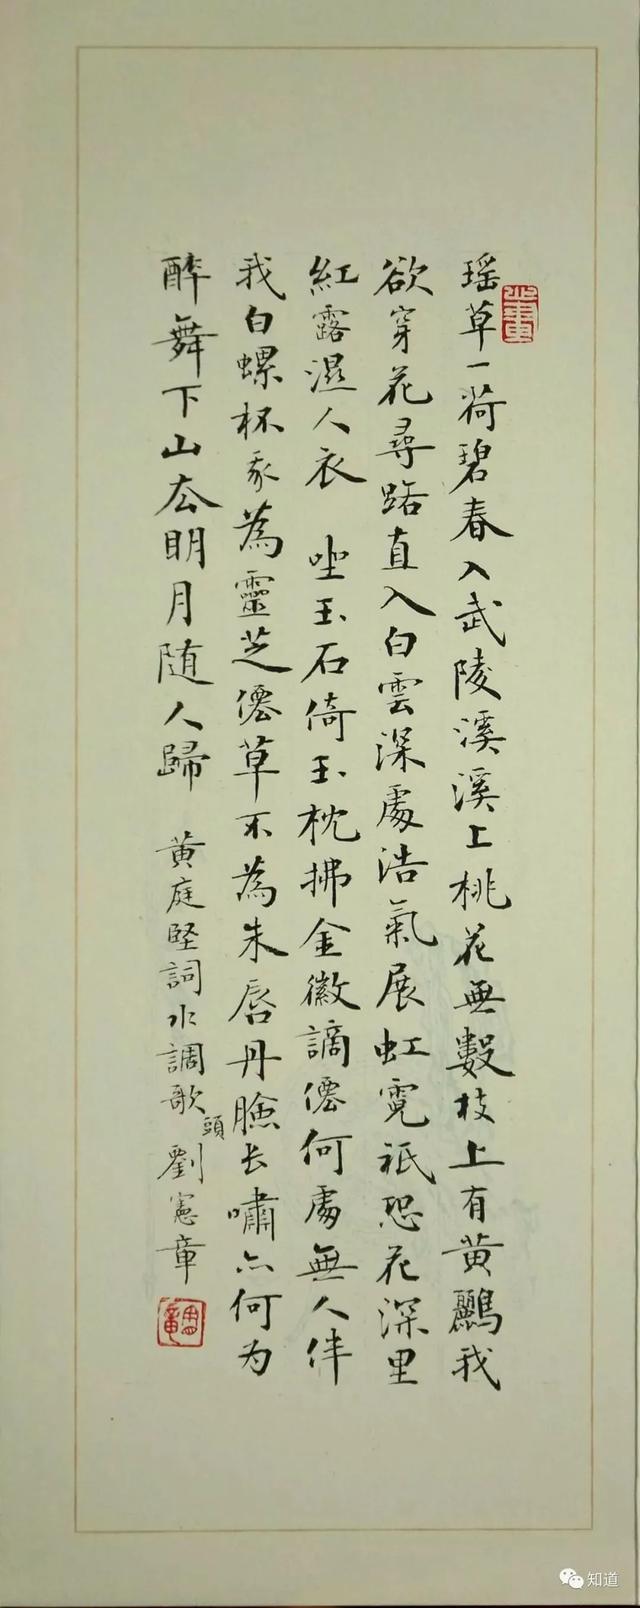 瑶草一荷碧春入武陵溪溪上桃花無數枝上有黄鸝我
欲穿花尋路直入白雲深處浩氣展虹霓祇恐花深里
紅露濕人衣 坐玉石倚玉枕拂金徽謫僊何處無人伴
我白螺杯我為靈芝僊草不為朱唇丹臉长嘯亦何为
醉舞下山去明月随人歸 黄庭堅詞水調歌頭 劉憲章
知道